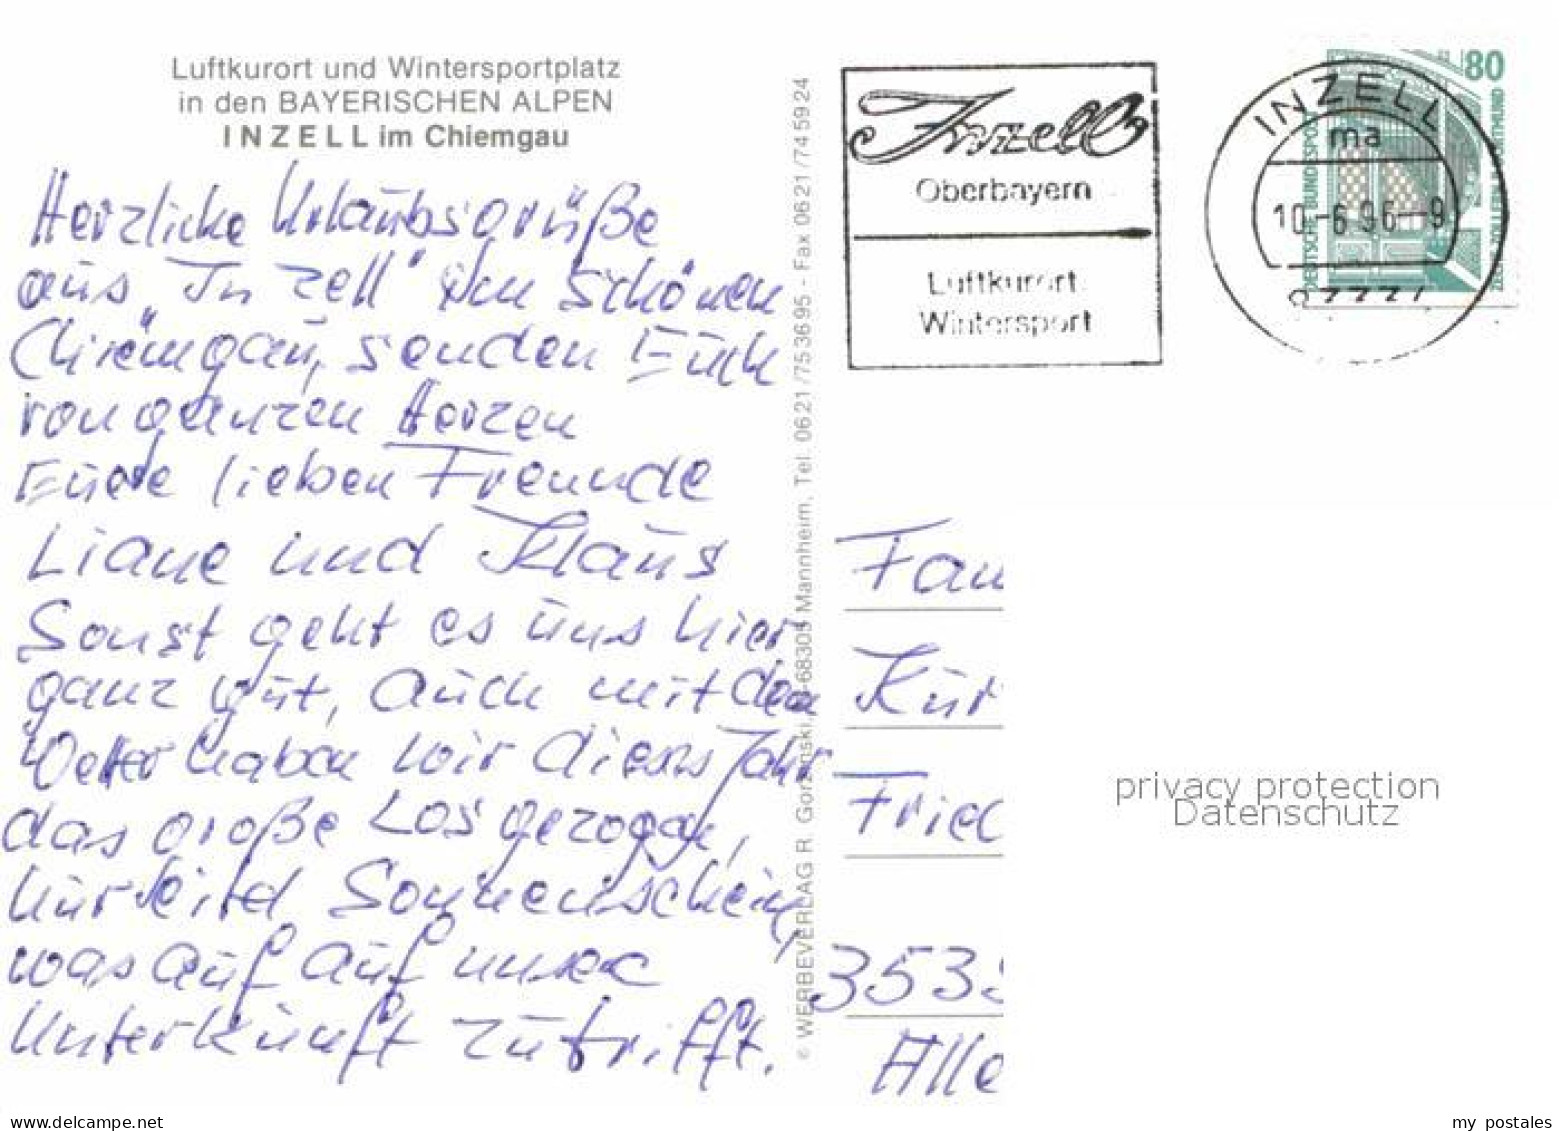 Luftkurort und Wintersportplatz
in den BAYERISCHEN ALPEN
INZELL im Chiemgau
Herzliche Urlaubsgrüße
aus "Inzell" im schönen
Chiemgau, senden Euch
von ganzen Herzen
Eure lieben Freunde
Liane und Klaus
Sonst geht es uns hier
ganz gut, auch mit dem
Wetter haben wir dieses Jahr
das große Los gezogen,
nur Sonnenschein,
was auf auf unsere
Unterkunft zutrifft.
© WERBEVERLAG R. Gorzinski, D-68305 Mannheim, Tel. 0621/753695 - Fax 0621/745924
Inzell
Oberbayern
Luftkurort
Wintersport
INZELL
ma
10.-6.96-9
80
DEUTSCHE BUNDESPOST
ZECHE ZOLLERN II DORTMUND
Fam
Kur
Fried
353
Alle
privacy protection
Datenschutz
delcampe.net
my_postales